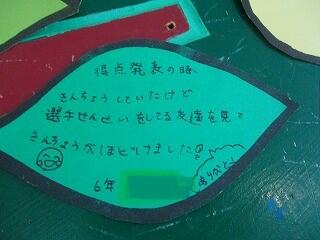 得点発表の時、
きんちょうしていたけど
選手せんせいをしてる友達を見て
きんちょうがほどけました
6年
ありがとう